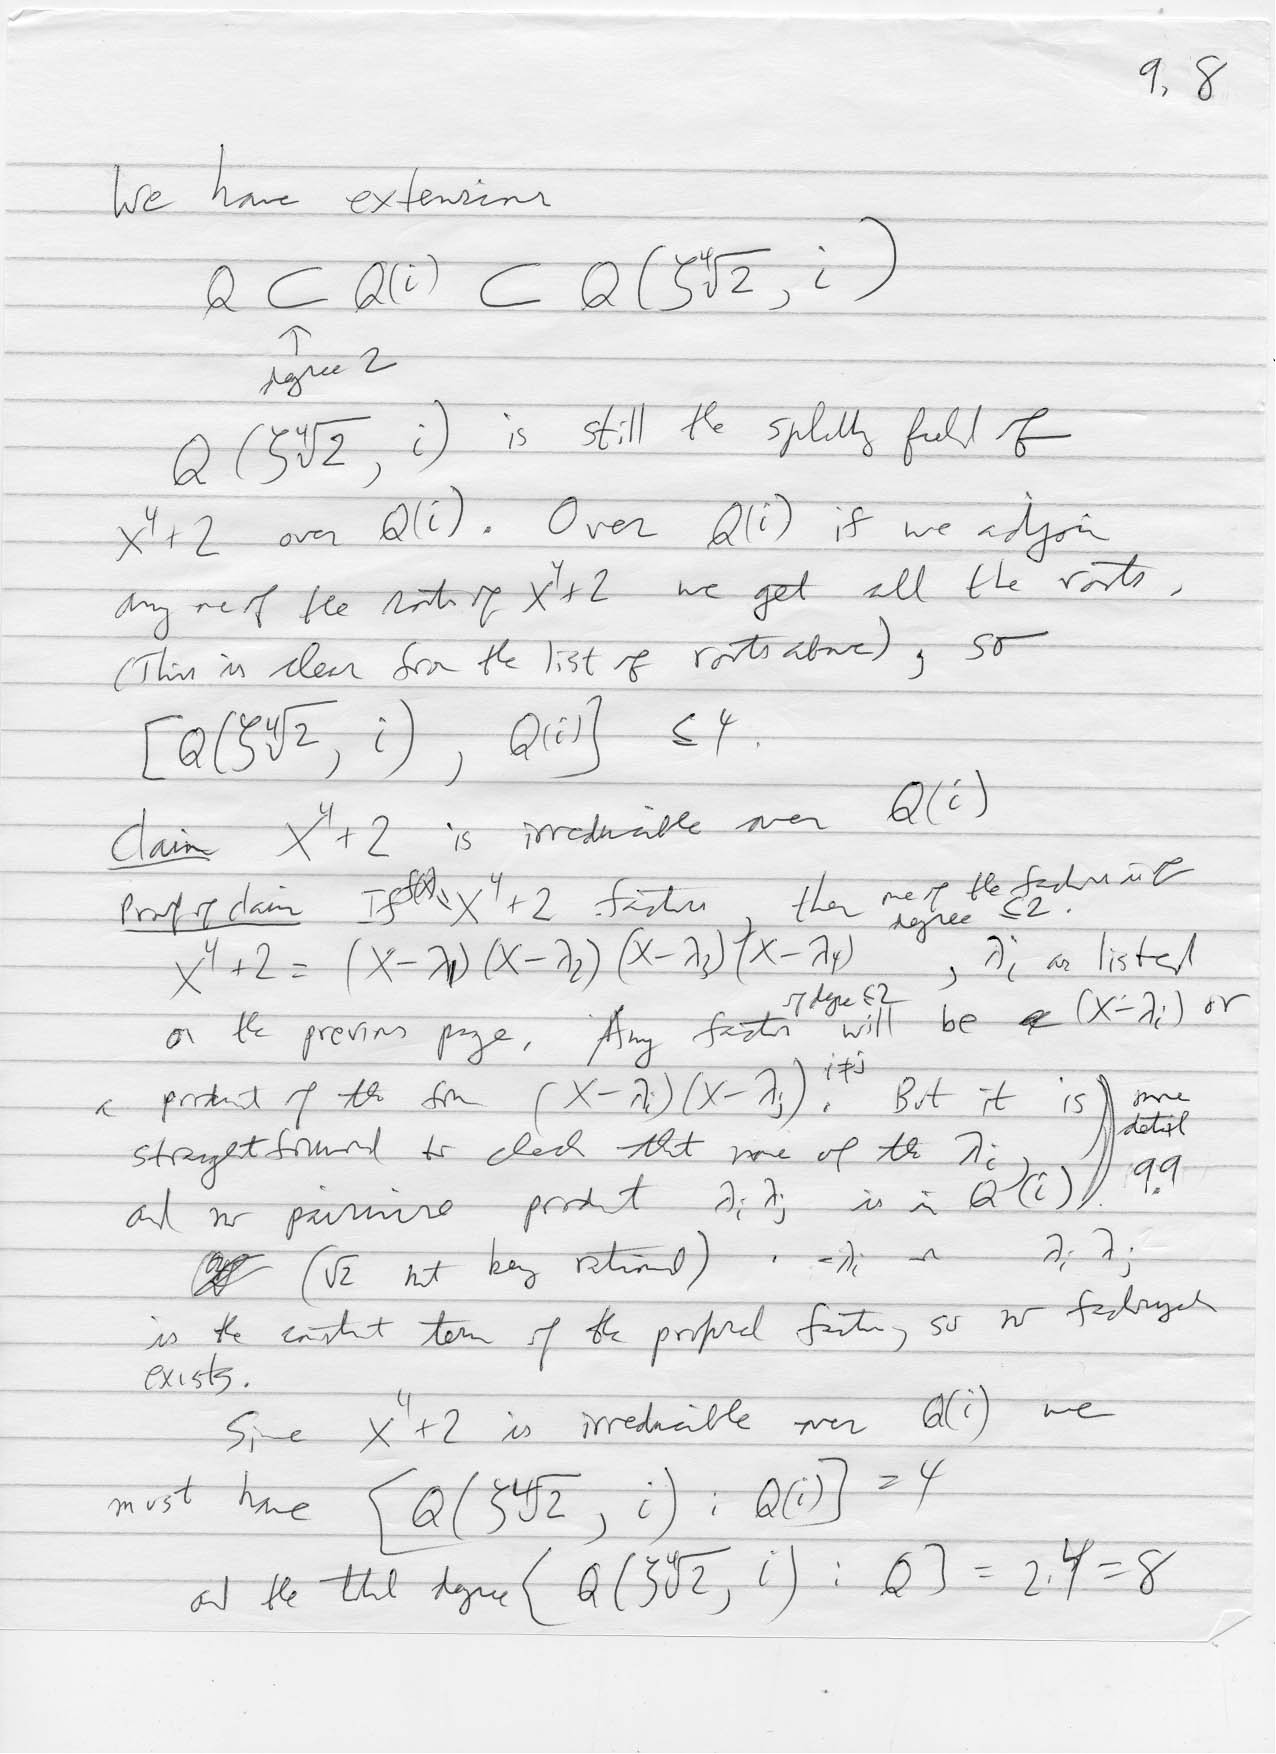 9.8
We have extensions
Q ⊂ Q(i) ⊂ Q(ζ⁴√2, i)
↑
degree 2
Q(ζ⁴√2, i) is still the splitting field of
x⁴+2 over Q(i). Over Q(i) if we adjoin
any one of the roots of x⁴+2 we get all the roots,
(This is clear from the list of roots above), so
[Q(ζ⁴√2, i), Q(i)] ≤ 4.
Claim x⁴+2 is irreducible over Q(i)
Proof of claim If f(x)= x⁴+2 factors, then one of the factors is of degree ≤2.
x⁴+2 = (x-λ₁)(x-λ₂)(x-λ₃)(x-λ₄), λᵢ as listed
on the previous page. Any factor of degree ≤2 will be (x-λᵢ) or
a product of the form (x-λᵢ)(x-λⱼ), i≠j. But it is
straightforward to check that none of the λᵢ,
and no pairwise product λᵢλⱼ is in Q(i)
more detail 9.9
(√2 not being rational). -λᵢ or λᵢλⱼ
is the constant term of the proposed factor, so no factorization
exists.
Since x⁴+2 is irreducible over Q(i) we
must have [Q(ζ⁴√2, i) : Q(i)] = 4
and the total degree [Q(ζ⁴√2, i) : Q] = 2·4 = 8